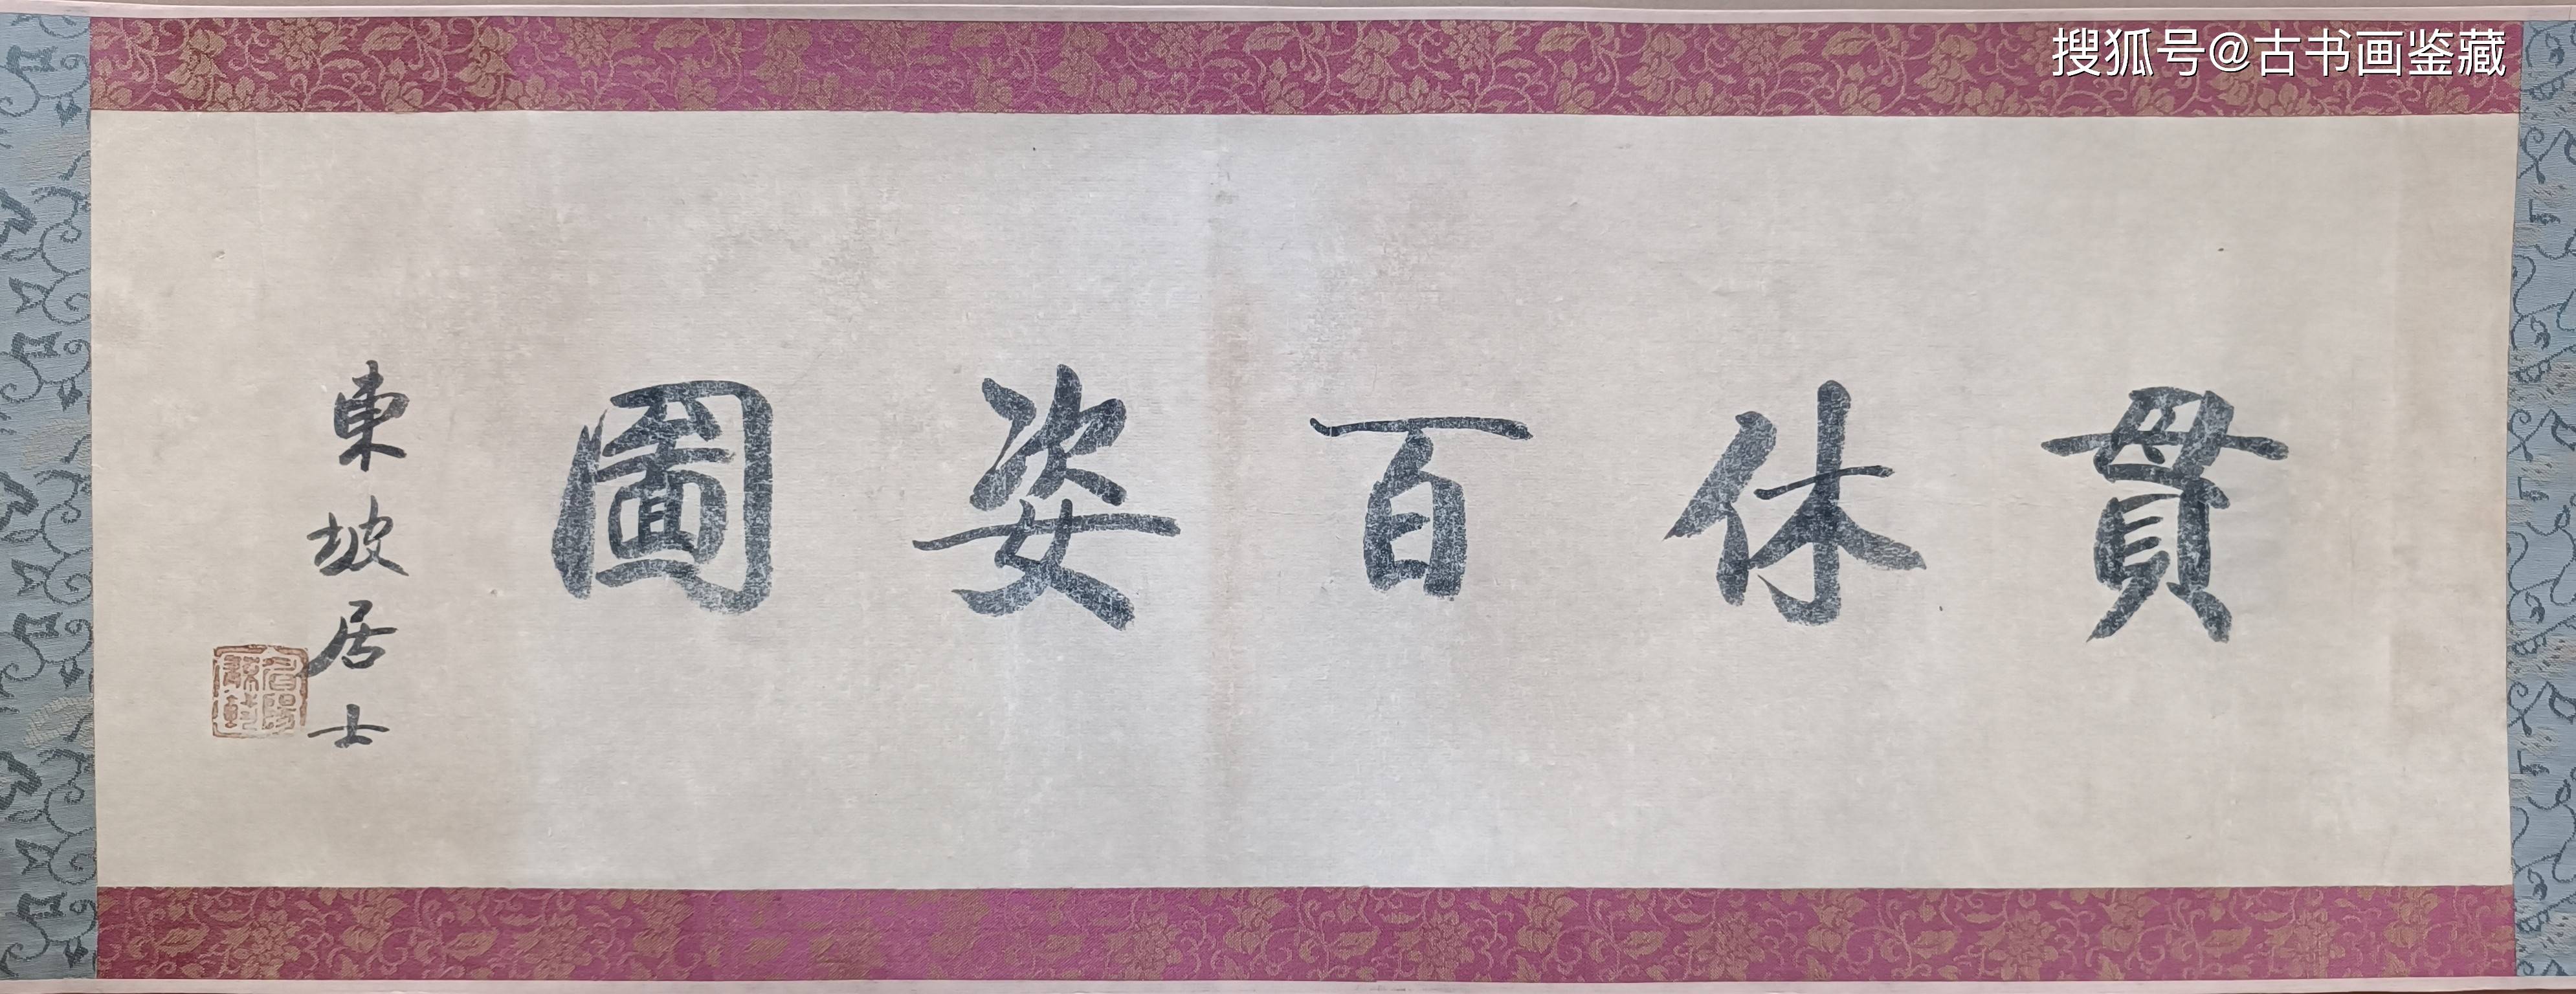 搜狐号@古书画鉴藏
貫休百姿圖
東坡居士